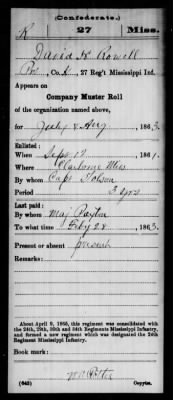 (Confederate.)
R 27 Miss.
David H Rowell
Pvt, Co. K, 27 Reg't Mississippi Inf.
Appears on
Company Muster Roll
of the organization named above,
for July & Aug, 1863.
Enlisted:
When Sept 17, 1861.
Where Claiborne Miss
By whom Capt Tolson
Period 3 yrs
Last paid:
By whom Maj Paxton
To what time Feby 28, 1863.
Present or absent present
Remarks:
About April 9, 1865, this regiment was consolidated with
the 24th, 29th, 30th and 34th Regiments Mississippi Infantry,
and formed a new regiment which was designated the 24th
Regiment Mississippi Infantry.
Book mark:
(642) Copyist.